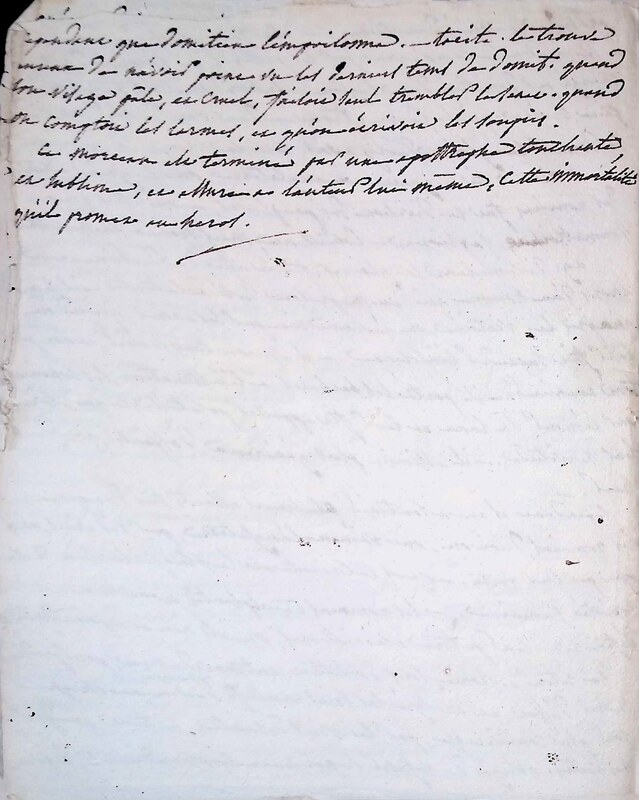 cependant que domitien l'empoisonna. – tacite. le trouve
heureux de n'avoir point vu les derniers tems de domit. quand
son visage pâle, et cruel, faisoit seul trembler la terre. quand
on comptoit les larmes, et qu'on écrivoit les soupirs.
Ce morceau est terminé par une apostrophe touchante,
et sublime, et assure a l'auteur lui même, cette immortalité
qu'il promet au heros.